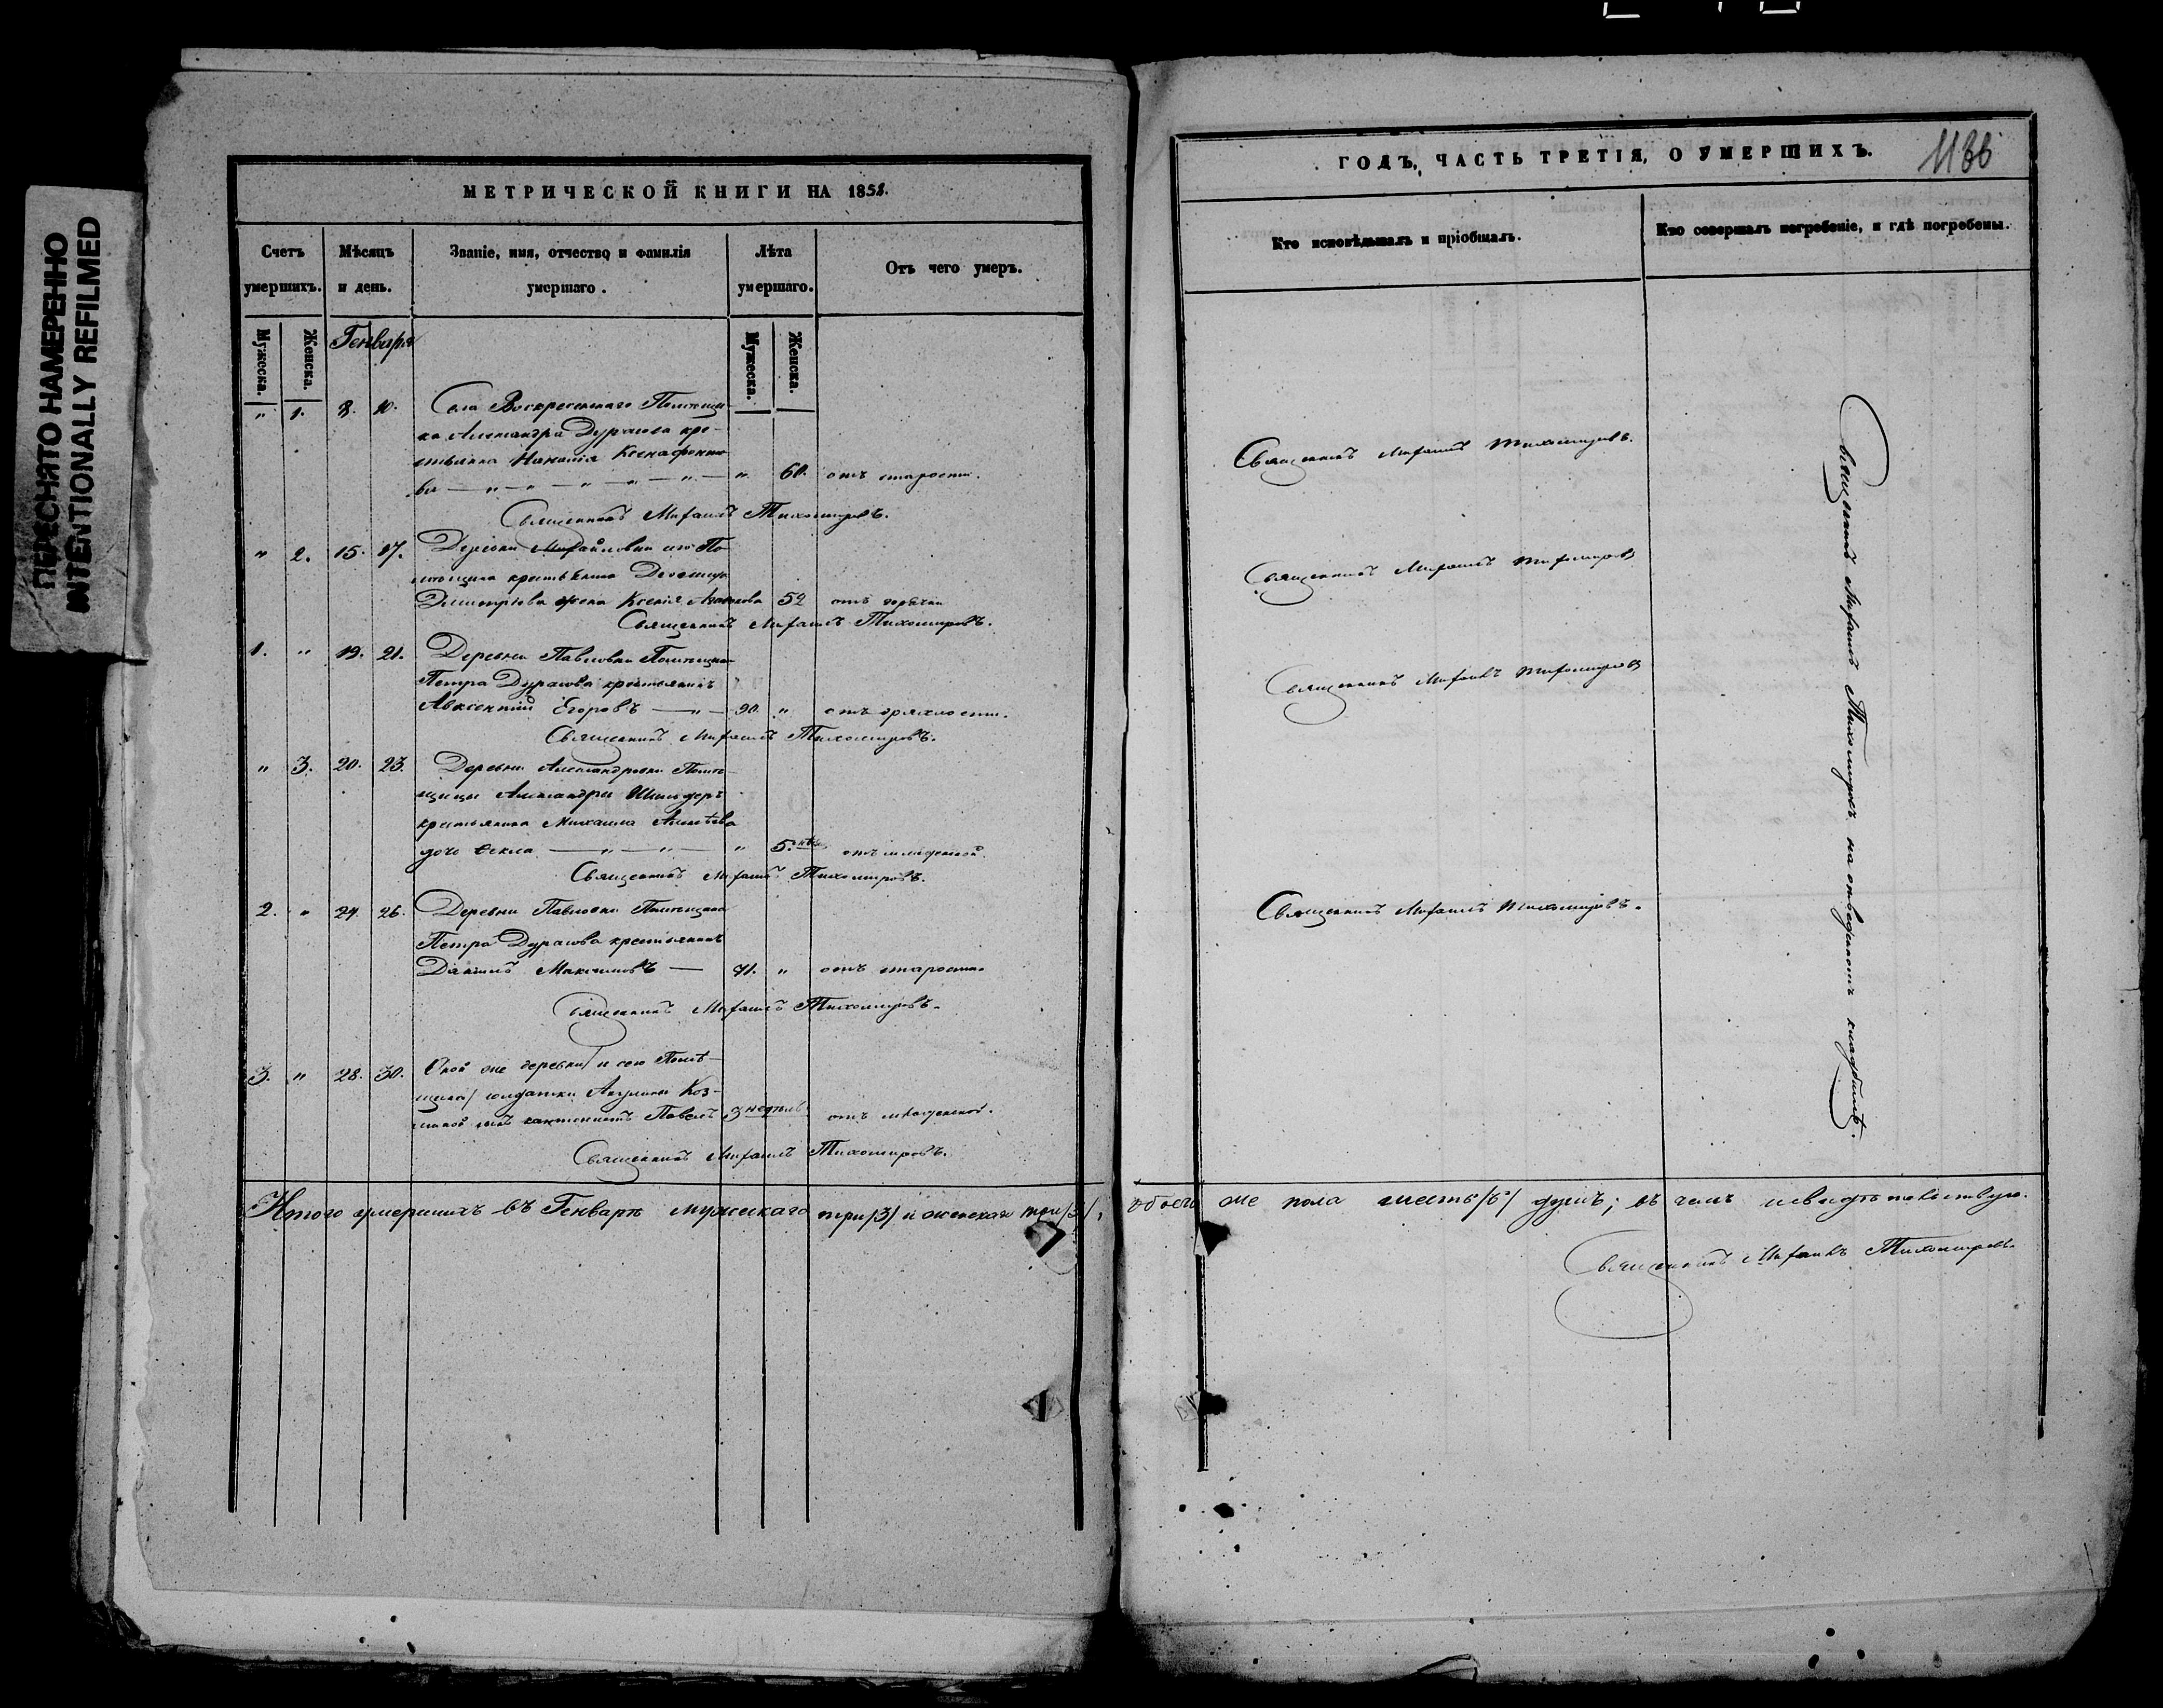 ПЕРЕСНЯТО НАМЕРЕННО
INTENTIONALLY REFILMED
МЕТРИЧЕСКОЙ КНИГИ НА 1858.
Счетъ умершихъ.
Мѣсяцъ и день.
Званіе, имя, отчество и фамилія умершаго.
Лѣта умершаго.
Отъ чего умеръ.
Мужеска.
Женска.
Генваря
Мужеска.
Женска.
" 1. 8. 10. Села Воскресенскаго Помѣщи-
ка Александра Дурасова кре-
стьянка Ксенофонто-
ва — " — " — " — " — " — " 60. отъ старости.
Священникъ Михаилъ Тихомировъ.
" 2. 15. 17. Деревни Михайловки его По-
мѣщика крестьянина
Димитріева жена Ксенія 52 отъ горячки
Священникъ Михаилъ Тихомировъ.
1. " 19. 21. Деревни Павловки Помѣщика
Петра Дурасова крестьянинъ
Авксентій Егоровъ — " — 90. " отъ дряхлости.
Священникъ Михаилъ Тихомировъ.
" 3. 20. 23. Деревни Александровки Помѣ-
щицы Александры
крестьянина Михаила
дочь Фекла — " — " — " 5. отъ младенской.
Священникъ Михаилъ Тихомировъ.
2. " 24. 26. Деревни Павловки Помѣщика
Петра Дурасова крестьянинъ
Даніилъ Максимовъ — 71. " отъ старости.
Священникъ Михаилъ Тихомировъ.
3. " 28. 30. Оной же деревни и сего Помѣ-
щика солдатки Акулины Коз-
сынъ кантонистъ Павелъ 3 недѣль отъ младенской.
Священникъ Михаилъ Тихомировъ.
Итого умершихъ въ Генварѣ мужескаго три /3/ и женскаго три /3/,
ГОДЪ, ЧАСТЬ ТРЕТІЯ, О УМЕРШИХЪ.
Кто исповѣдывалъ и пріобщалъ.
Кто совершалъ погребеніе, и гдѣ погребены.
Священникъ Михаилъ Тихомировъ.
Священникъ Михаилъ Тихомировъ
Священникъ Михаилъ Тихомировъ
Священникъ Михаилъ Тихомировъ.
Священникъ Михаилъ Тихомировъ на отведенномъ кладбищѣ.
обоего же пола шесть /6/ душъ; въ чемъ и свидѣтельствую.
Священникъ Михаилъ Тихомировъ.